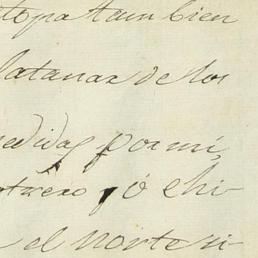 topa tambien
latanar de los
edidas por mi,
potrero, ó chi-
el norte ri-